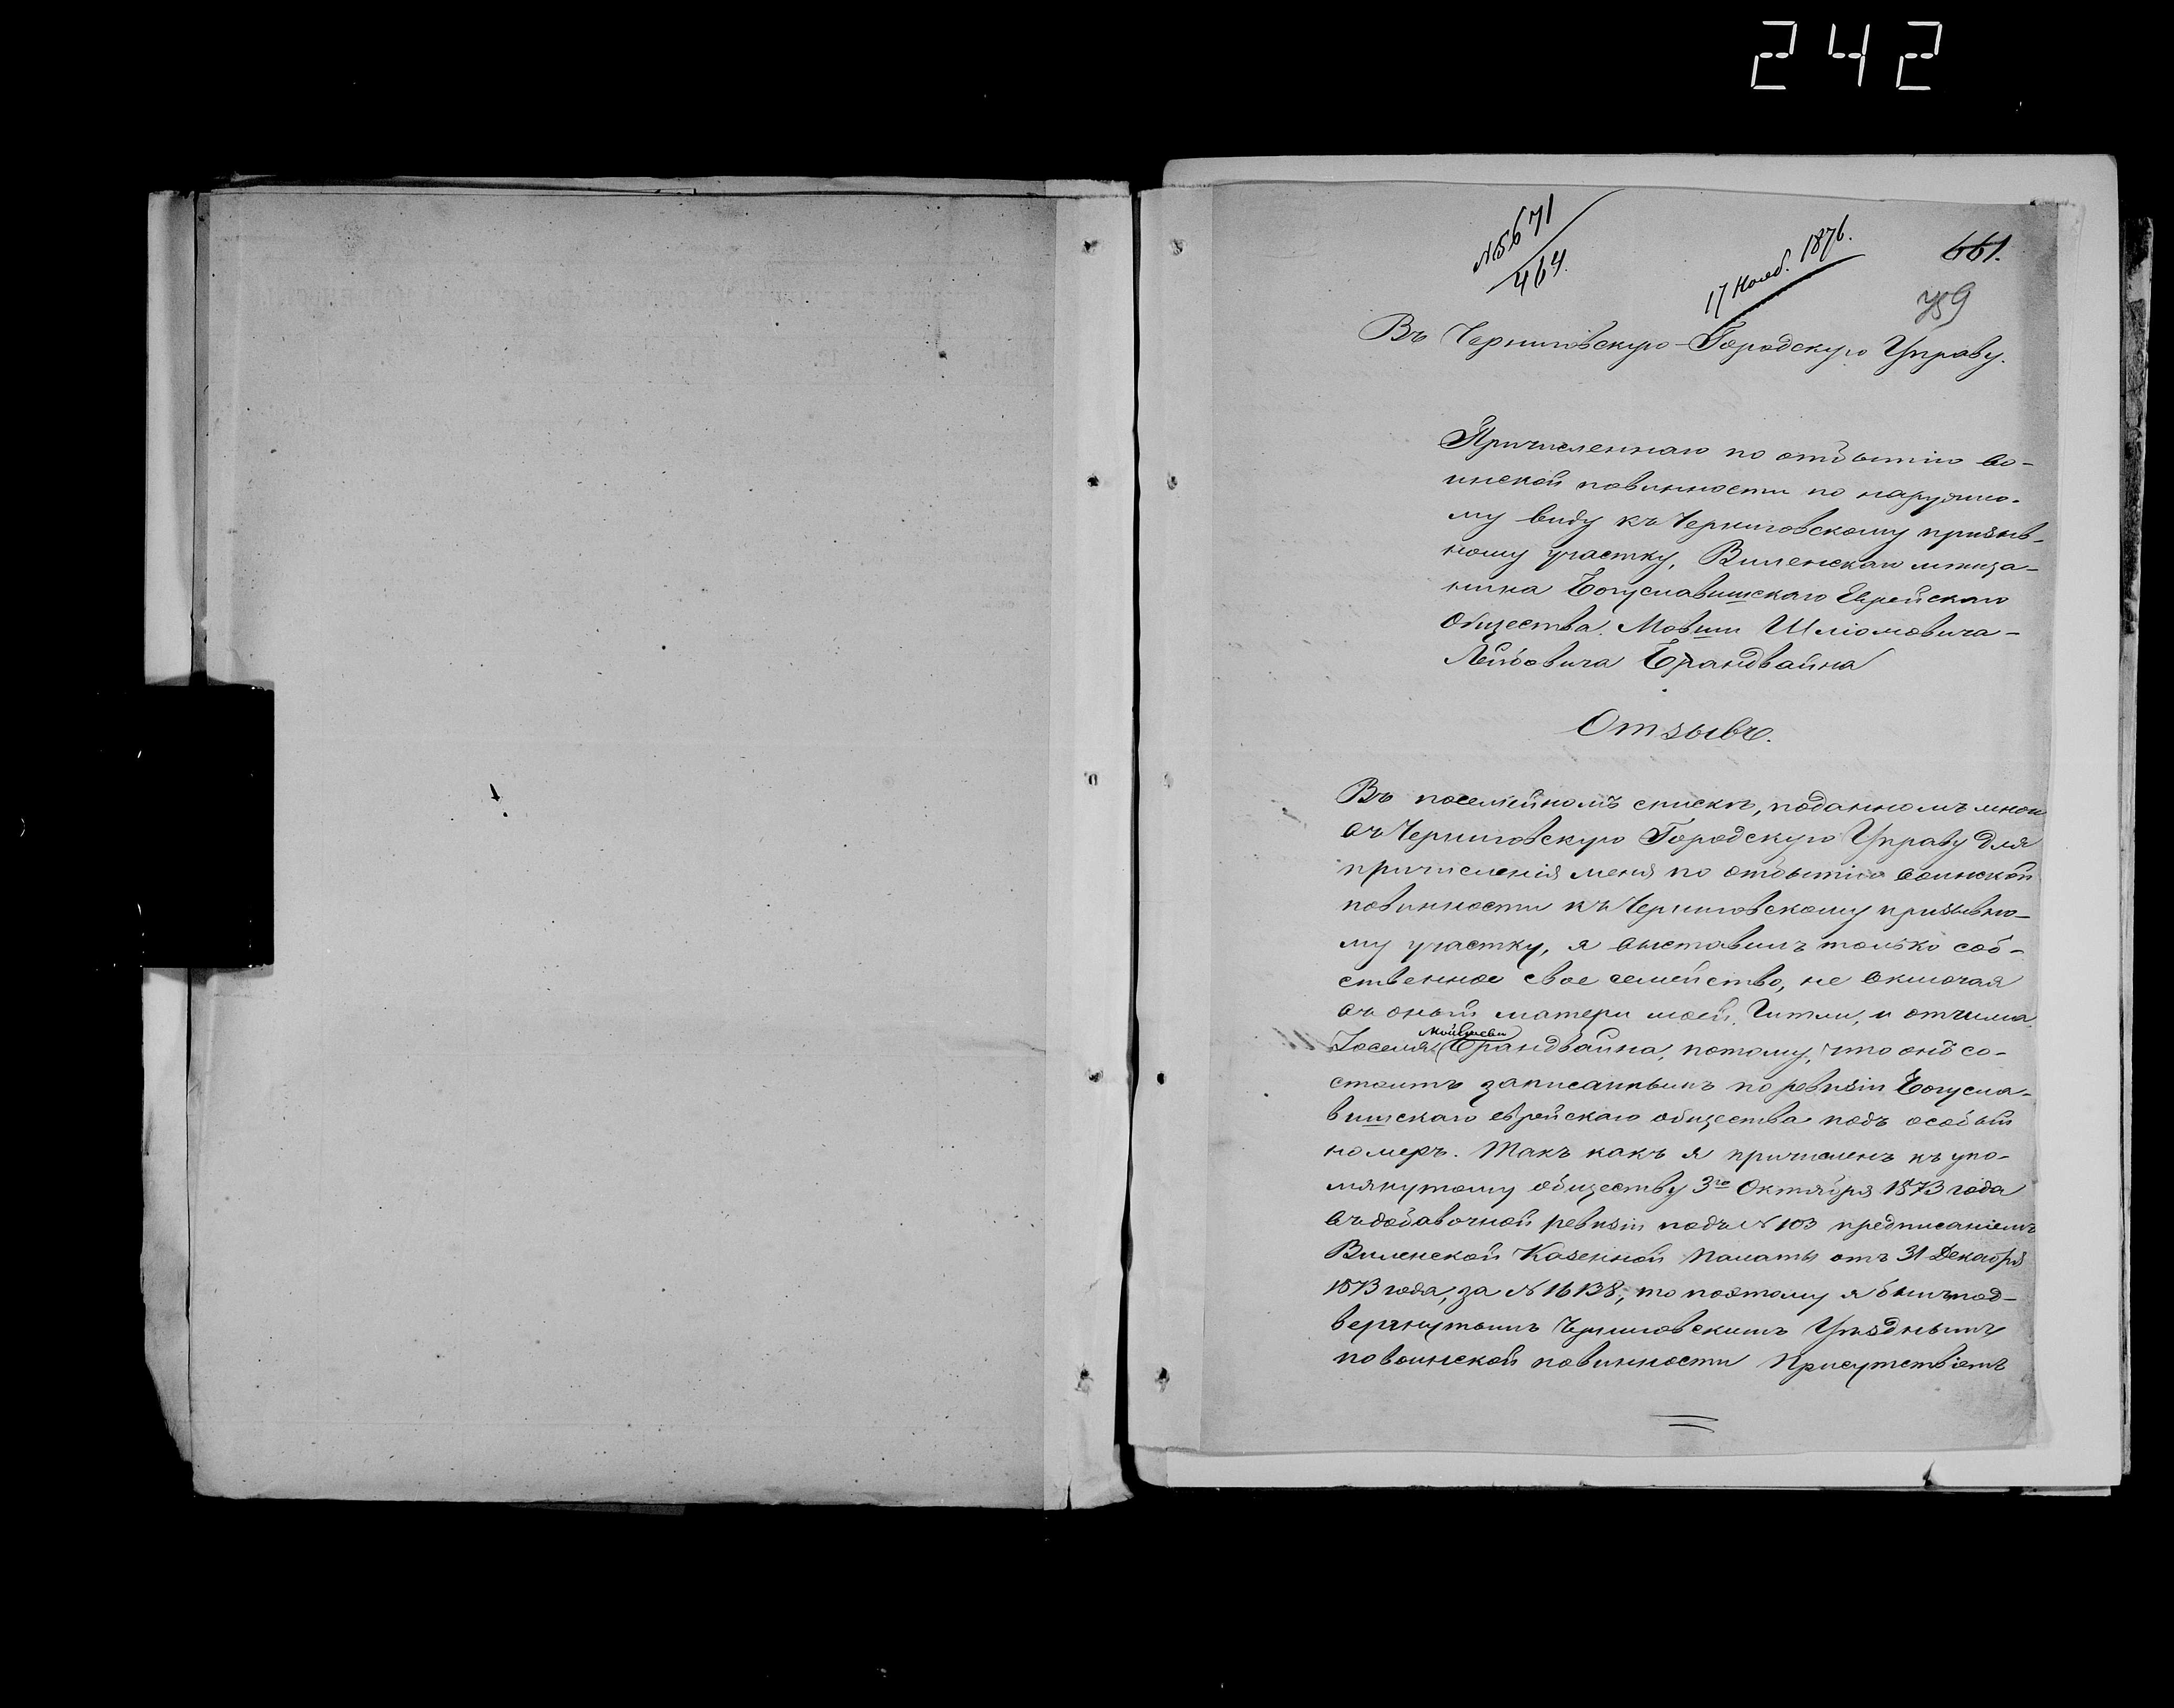 242
№ 5671
464.
17 Нояб. 1876.
661.
759
Въ Черниговскую Городскую Управу.
Причисленнаго по отбытію во-
инской повинности по наружно-
му виду къ Черниговскому призыв-
ному участку, Виленскаго мѣща-
нина Богуславишскаго Еврейскаго
Общества Мовши Шліомовича-
Лейбовича Брандвайна
Отзывъ.
Въ посемейномъ спискѣ, поданномъ мною
въ Черниговскую Городскую Управу для
причисленія меня по отбытію воинской
повинности къ Черниговскому призывно-
му участку, я выставилъ только соб-
ственное свое семейство, не включая
въ оный матери моей, Гитли, и отчима
Мойсѣева
Іоселя Брандвайна, потому, что онъ со-
стоитъ записаннымъ по ревизіи Богусла-
вишскаго еврейскаго общества подъ особый
номеръ. Такъ какъ я причисленъ къ упо-
мянутому обществу 3го Октября 1873 года
въ добавочной ревизіи подъ № 103 предписаніемъ
Виленской Казенной Палаты отъ 31 Декабря
1873 года, за № 16138, то поэтому я былъ под-
вергнутымъ Черниговскимъ Уѣзднымъ
по воинской повинности Присутствіемъ